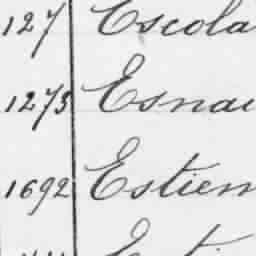 127 Escola
1273 Esnau
1692 Estien